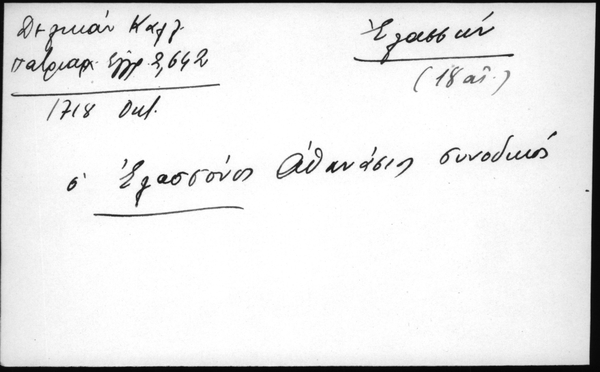 Δελικάν Καλλ.
Πατριαρ. Έγγρ. 2,642
1718 Οκτ.
Ἐλασσών
(18 αἰ.)
ὁ Ἐλασσόνος Ἀθανάσιος συνοδικός